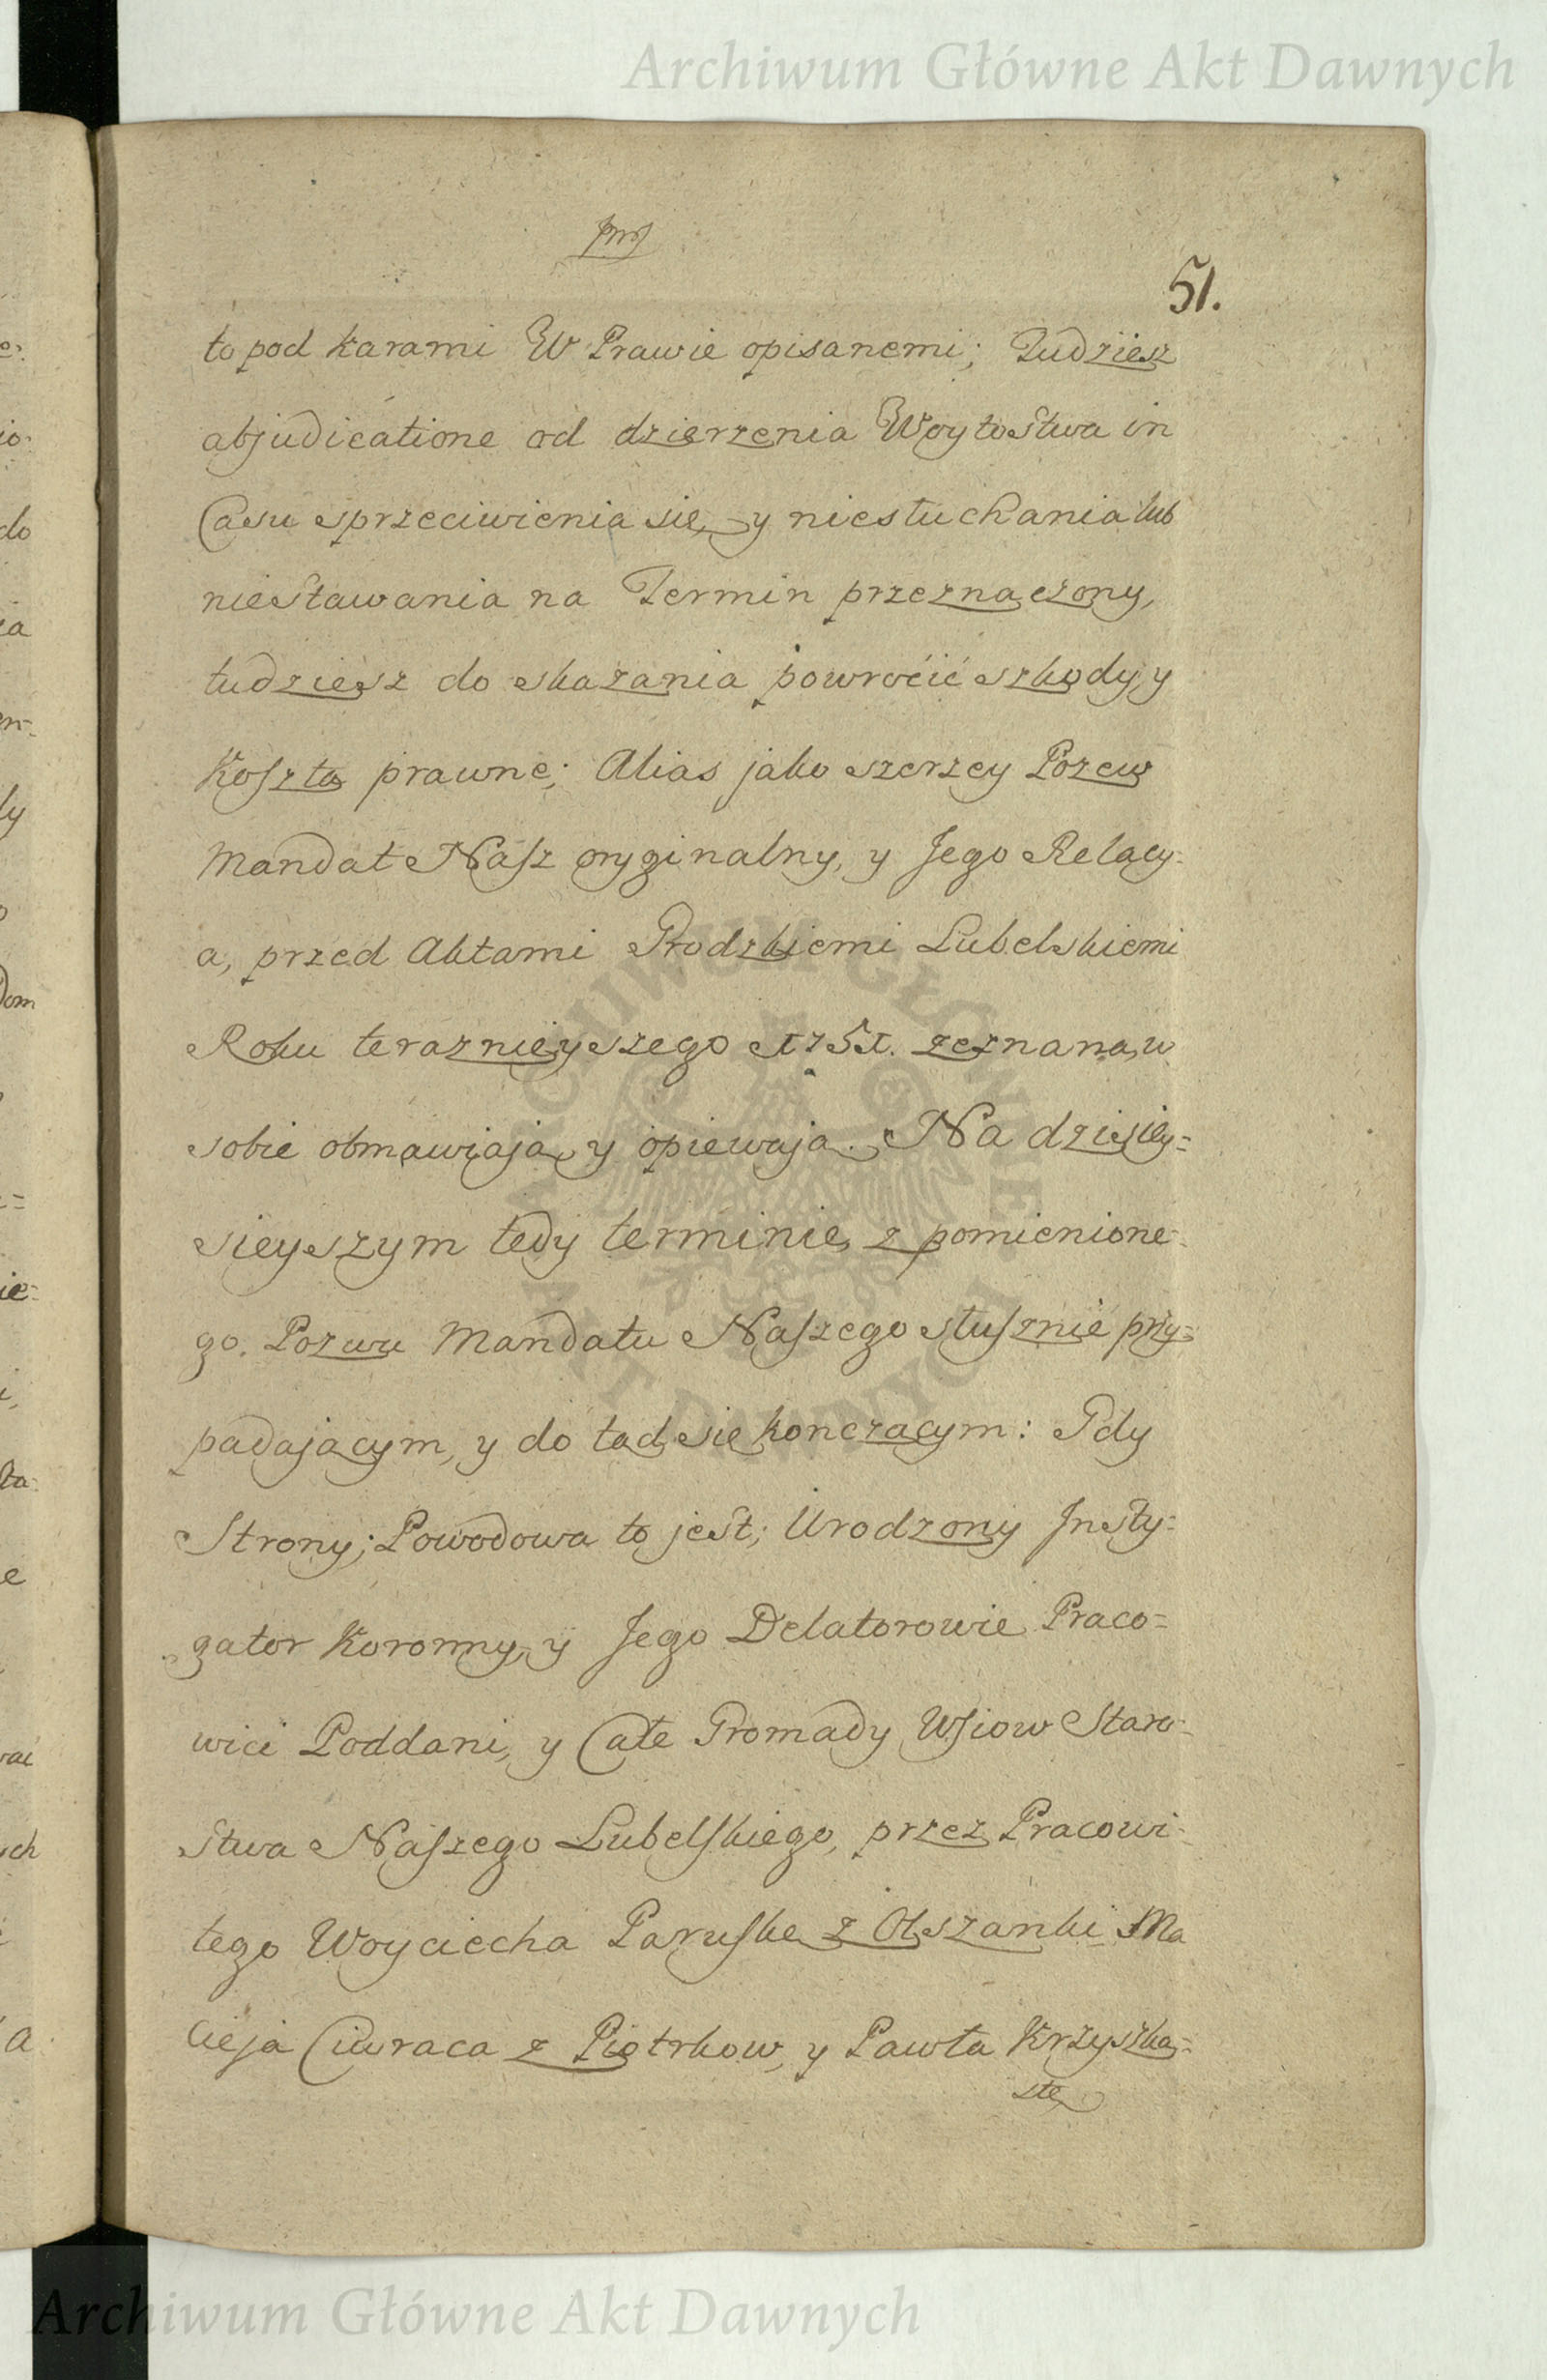 Archiwum Główne Akt Dawnych
51.
to pod karami W Prawie opisanemi; Tudziesz
abjudicatione od dzierzenia Woytostwa in
Casu sprzeciwienia się, y niesłuchania lub
niestawania na Termin przeznaczony,
tudziesz do skazania powrocić szkody, y
Koszta prawne; Alias jako szerzey Pozew
Mandat Nasz oryginalny, y Jego Relacy-
a, przed Aktami Grodzkiemi Lubelskiemi
Roku teraznieyszego 1751. zeznana, w
sobie obmawiają, y opiewają. Na dzisiey=
sieyszym tedy terminie, z pomienione-
go. Pozwu Mandatu Naszego słusznie przy=
padającym, y do tąd się kończącym: Gdy
Strony; Powodowa to jest; Urodzony Insty=
gator Koronny, y Jego Delatorowie Praco=
wici Poddani, y Całe Gromady Wsiow Staro-
stwa Naszego Lubelskiego, przez Pracowi-
tego Woyciecha Paruskę z Olszanki Ma
cieja Ciwraca z Piotrkow, y Pawła Krzyszka=
ARCHIWUM GŁÓWNE AKT DAWNYCH
Archiwum Główne Akt Dawnych